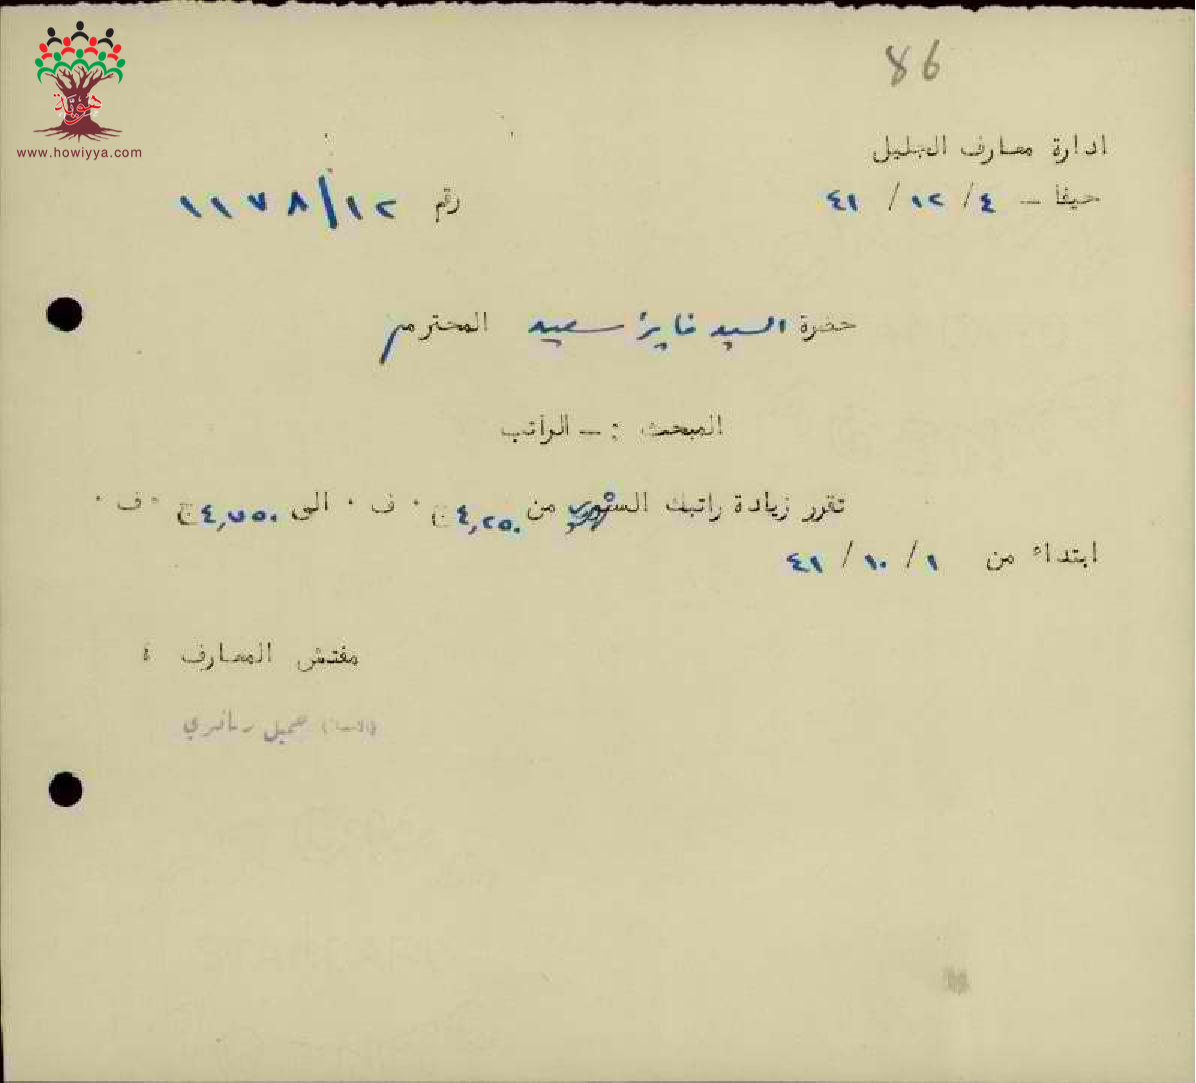 86
هوية
www.howiyya.com
ادارة معارف الجليل
حيفا – ٤ / ١٢ / ٤١
رقم ١١٧٨/١٢
حضرة السيد فايز سعيد المحترم
المبحث : – الراتب
تقرر زيادة راتبك من ٤,٢٥٠ ج ٠ ف ٠ الى ٤,٧٥٠ ج ٠ ف ٠
ابتداء من ١ / ١٠ / ٤١
مفتش المعارف ؛
جميل